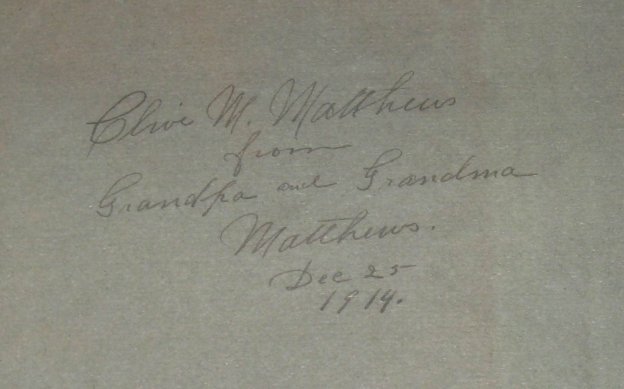 Clive M. Matthews
from
Grandpa and Grandma
Matthews.
Dec 25
1914.